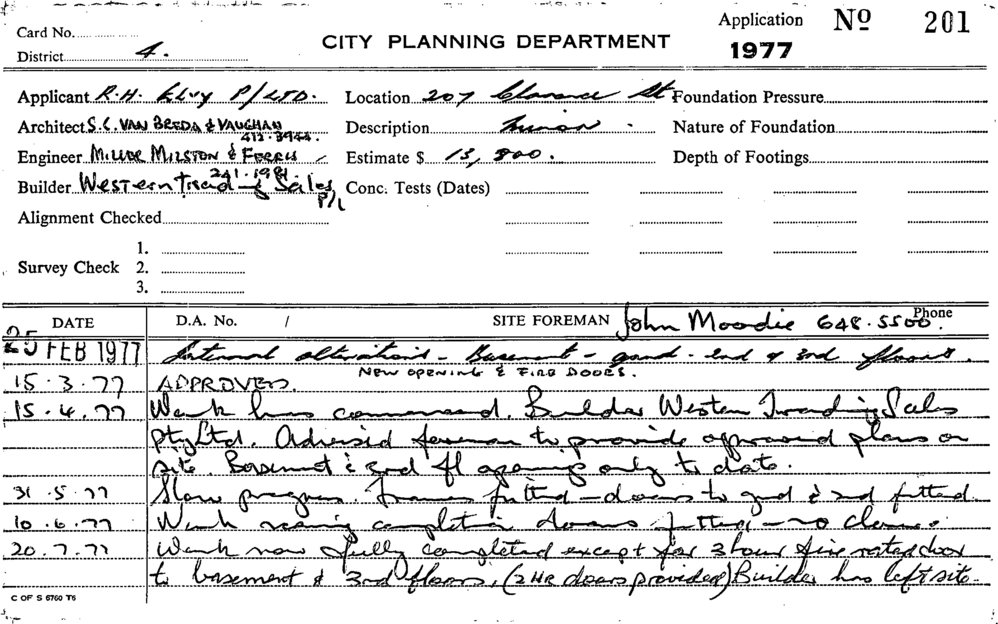 Card No.
Application No 201
District 4.
CITY PLANNING DEPARTMENT
1977
Applicant R.H. Elvy P/LTD. Location 207 Clarence St Foundation Pressure
Architect S.C. VAN BREDA & VAUGHAN Description Minor Nature of Foundation
412.3944.
Engineer MILLER MILSTON & FERRIS Estimate $ 13,800. Depth of Footings
241.1981
Builder Western Trading Sales P/L Conc. Tests (Dates)
Alignment Checked
1.
Survey Check 2.
3.
DATE D.A. No. / SITE FOREMAN John Moodie Phone 648.5500.
25 FEB 1977 Internal alterations - Basement - grnd - 2nd & 3rd floors.
NEW OPENING & FIRE DOORS.
15.3.77 APPROVED.
15.4.77 Work has commenced. Builder Western Trading Sales
Pty Ltd. Advised foreman to provide approved plans on
site. Basement & 3rd fl openings only to date.
31.5.77 Slow progress. Frames fitted - doors to grnd & 2nd fitted.
10.6.77 Work nearing completion doors fitted - no closers.
20.7.77 Work now fully completed except for 3 hour fire rated door
to basement & 3rd floors. (2 HR doors provided) Builder has left site.
C OF S 6760 T6